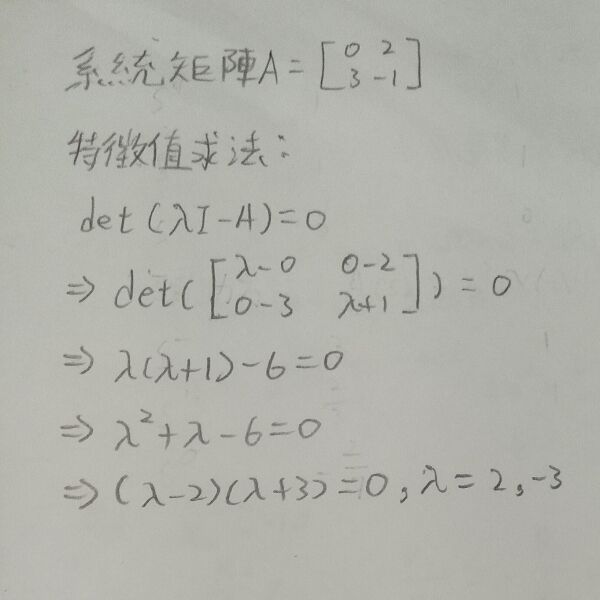 系統矩陣A=[0 2
3 -1]
特徵值求法:
det(λI-A)=0
⇒ det([λ-0 0-2
0-3 λ+1])=0
⇒ λ(λ+1)-6=0
⇒ λ²+λ-6=0
⇒ (λ-2)(λ+3)=0, λ=2,-3